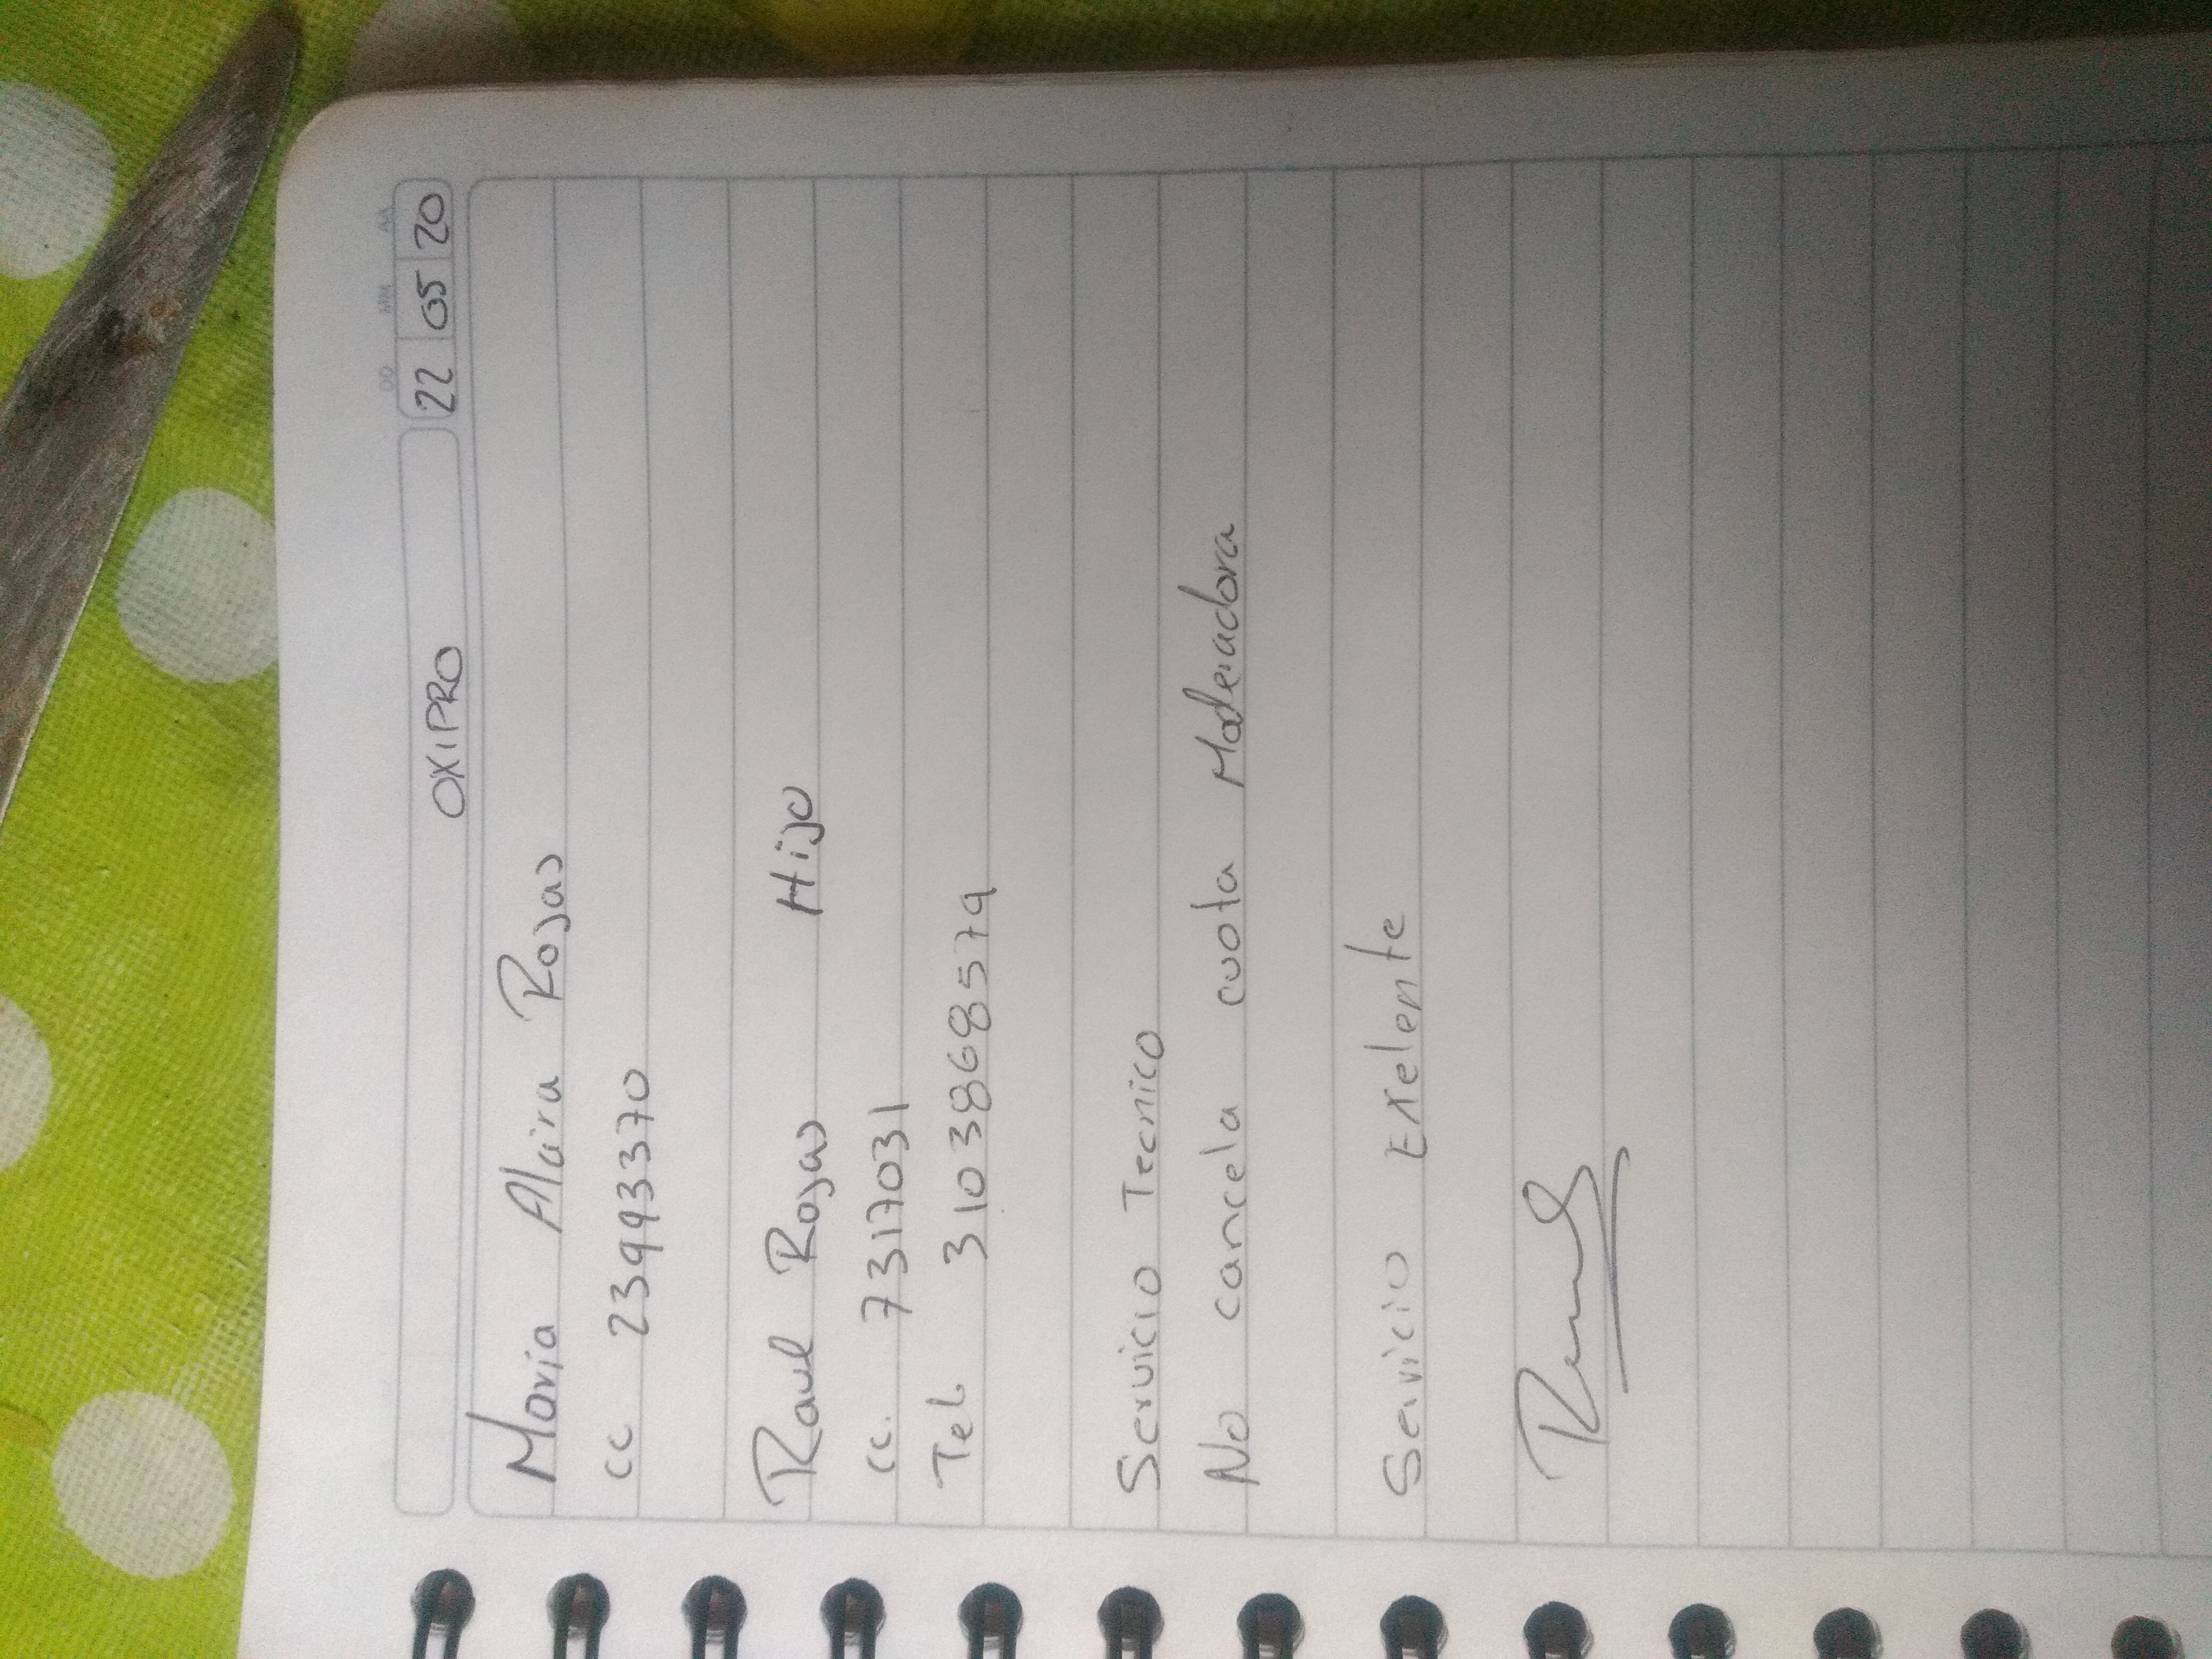 OXIPRO
DD MM AA
22 05 20
Maria Alcira Rojas
cc 23993370
Raul Rojas Hijo
cc. 7317031
Tel. 3103868579
Servicio Tecnico
No cancela cuota Moderadora
Servicio Exelente